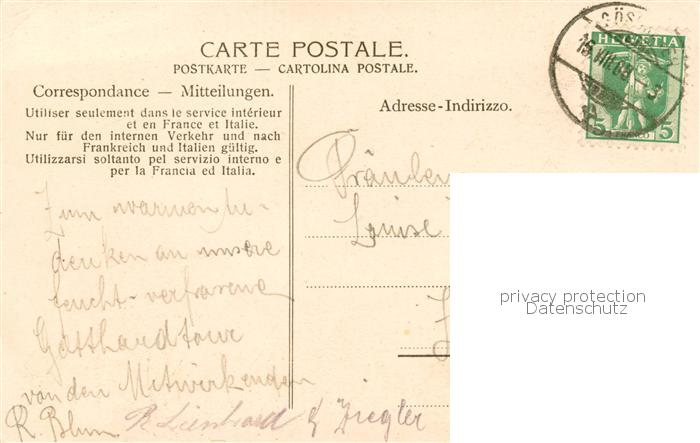 CARTE POSTALE.
POSTKARTE — CARTOLINA POSTALE.
Correspondance — Mitteilungen.
Utiliser seulement dans le service intérieur
et en France et Italie.
Nur für den internen Verkehr und nach
Frankreich und Italien gültig.
Utilizzarsi soltanto pel servizio interno e
per la Francia ed Italia.
Zum warmen Ge-
denken an unsere
feucht-verfrorene
Gotthardtour
von den Mitwirkenden
R. Blum R. Lienhardt & Ziegler
Adresse-Indirizzo.
Fräulein
Luise
HELVETIA
5
privacy protection
Datenschutz